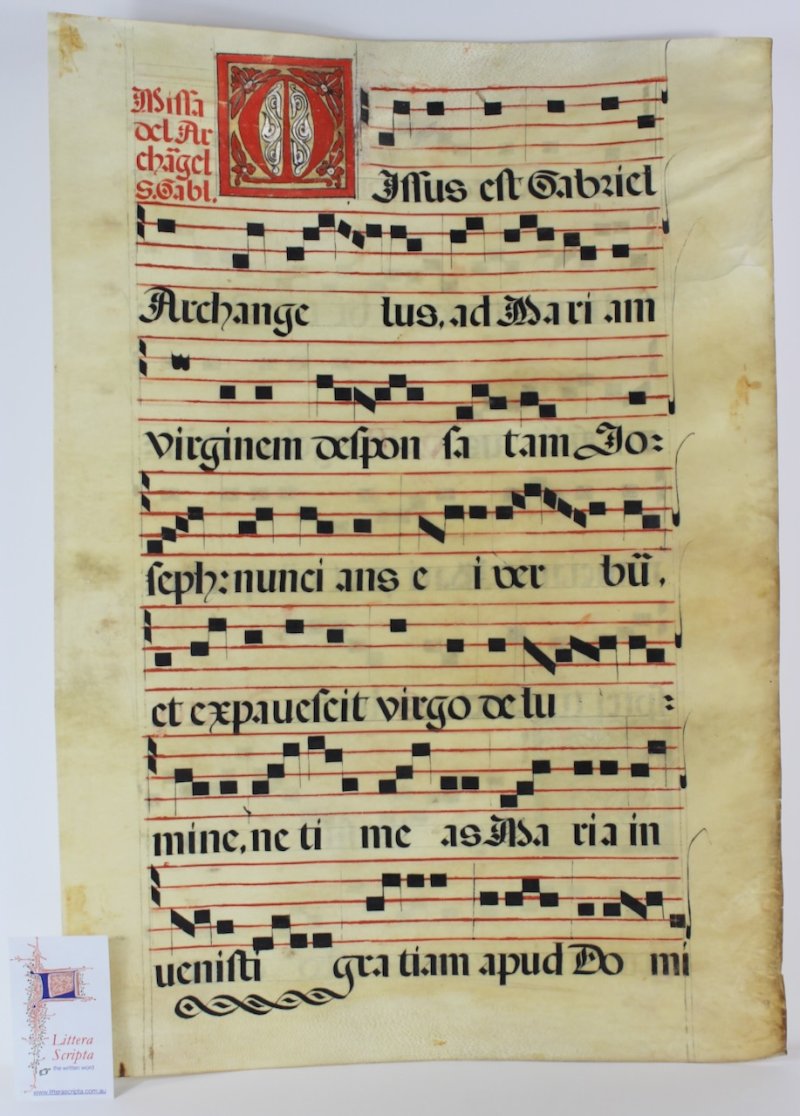 Missa
del Ar
chãgel
S. Gabl.
MIssus est Gabriel
Archange lus, ad Ma ri am
virginem despon sa tam Jo:
seph: nunci ans e i ver bũ,
et expauescit virgo de lu :
mine, ne ti me as Ma ri a in
uenisti gra tiam apud Do mi
Littera
Scripta
the written word
www.litterascripta.com.au